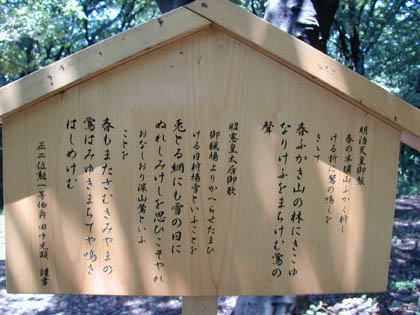 明治天皇御製
春の半頃山ふかく狩し
ける折に鶯の鳴くを
きゝて
春ふかき山の林にきこゆ
なりけふをまちけむ鶯の
聲
昭憲皇太后御歌
御獵場よりかへらせたまひ
ける日狩場雪といふことを
兎とる網にも雪の日に
ぬれしみけしを思ひこそやれ
おなしおり深山鶯といふ
ことを
春もまたさむきみやまの
鶯はみゆきまちてや鳴き
はしめけむ
正二位勲一等伯爵田中光顕 謹書